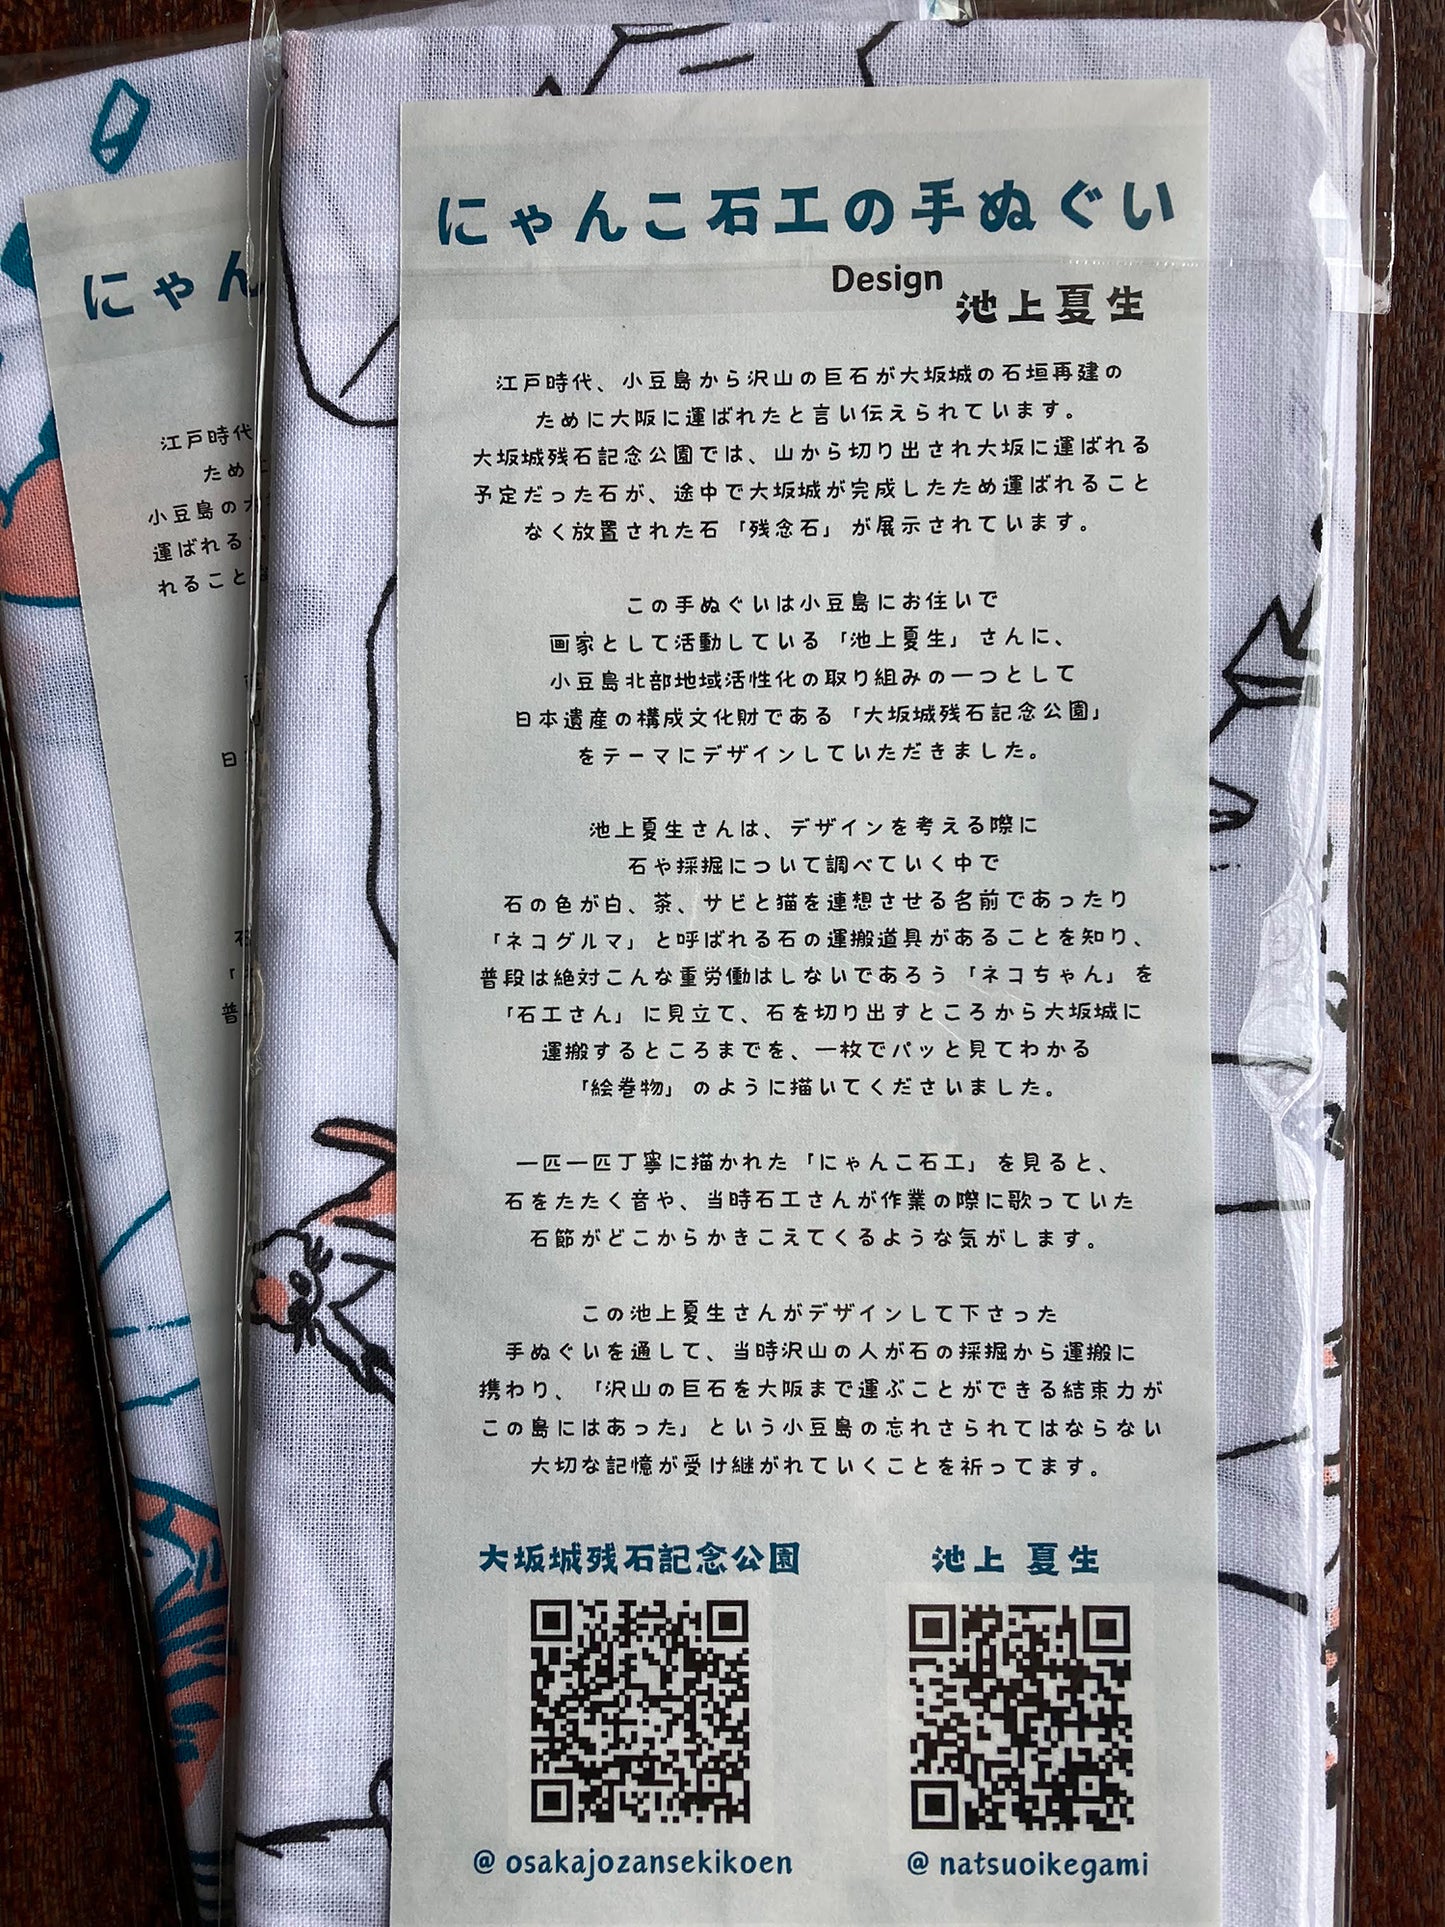 にゃんこ石工の手ぬぐい
Design 池上夏生
江戸時代、小豆島から沢山の巨石が大坂城の石垣再建の
ために大阪に運ばれたと言い伝えられています。
大坂城残石記念公園では、山から切り出され大坂に運ばれる
予定だった石が、途中で大坂城が完成したため運ばれること
なく放置された石「残念石」が展示されています。
この手ぬぐいは小豆島にお住いで
画家として活動している「池上夏生」さんに、
小豆島北部地域活性化の取り組みの一つとして
日本遺産の構成文化財である「大坂城残石記念公園」
をテーマにデザインしていただきました。
池上夏生さんは、デザインを考える際に
石や採掘について調べていく中で
石の色が白、茶、サビと猫を連想させる名前であったり
「ネコグルマ」と呼ばれる石の運搬道具があることを知り、
普段は絶対こんな重労働はしないであろう「ネコちゃん」を
「石工さん」に見立て、石を切り出すところから大坂城に
運搬するところまでを、一枚でパッと見てわかる
「絵巻物」のように描いてくださいました。
一匹一匹丁寧に描かれた「にゃんこ石工」を見ると、
石をたたく音や、当時石工さんが作業の際に歌っていた
石節がどこからかきこえてくるような気がします。
この池上夏生さんがデザインして下さった
手ぬぐいを通して、当時沢山の人が石の採掘から運搬に
携わり、「沢山の巨石を大阪まで運ぶことができる結束力が
この島にはあった」という小豆島の忘れさられてはならない
大切な記憶が受け継がれていくことを祈ってます。
大坂城残石記念公園
@osakajozansekikoen
池上 夏生
@natsuoikegami
にゃん
江戸時代
ため
小豆島の
運ばれる
れること
日
「
普